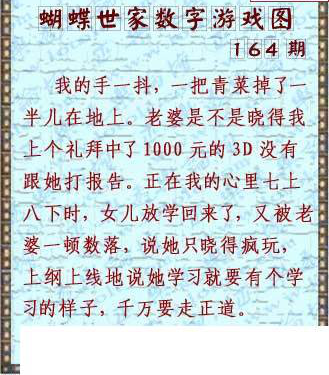 蝴蝶世家数字游戏图
164期
我的手一抖，一把青菜掉了一
半儿在地上。老婆是不是晓得我
上个礼拜中了1000元的3D没有
跟她打报告。正在我的心里七上
八下时，女儿放学回来了，又被老
婆一顿数落，说她只晓得疯玩，
上纲上线地说她学习就要有个学
习的样子，千万要走正道。